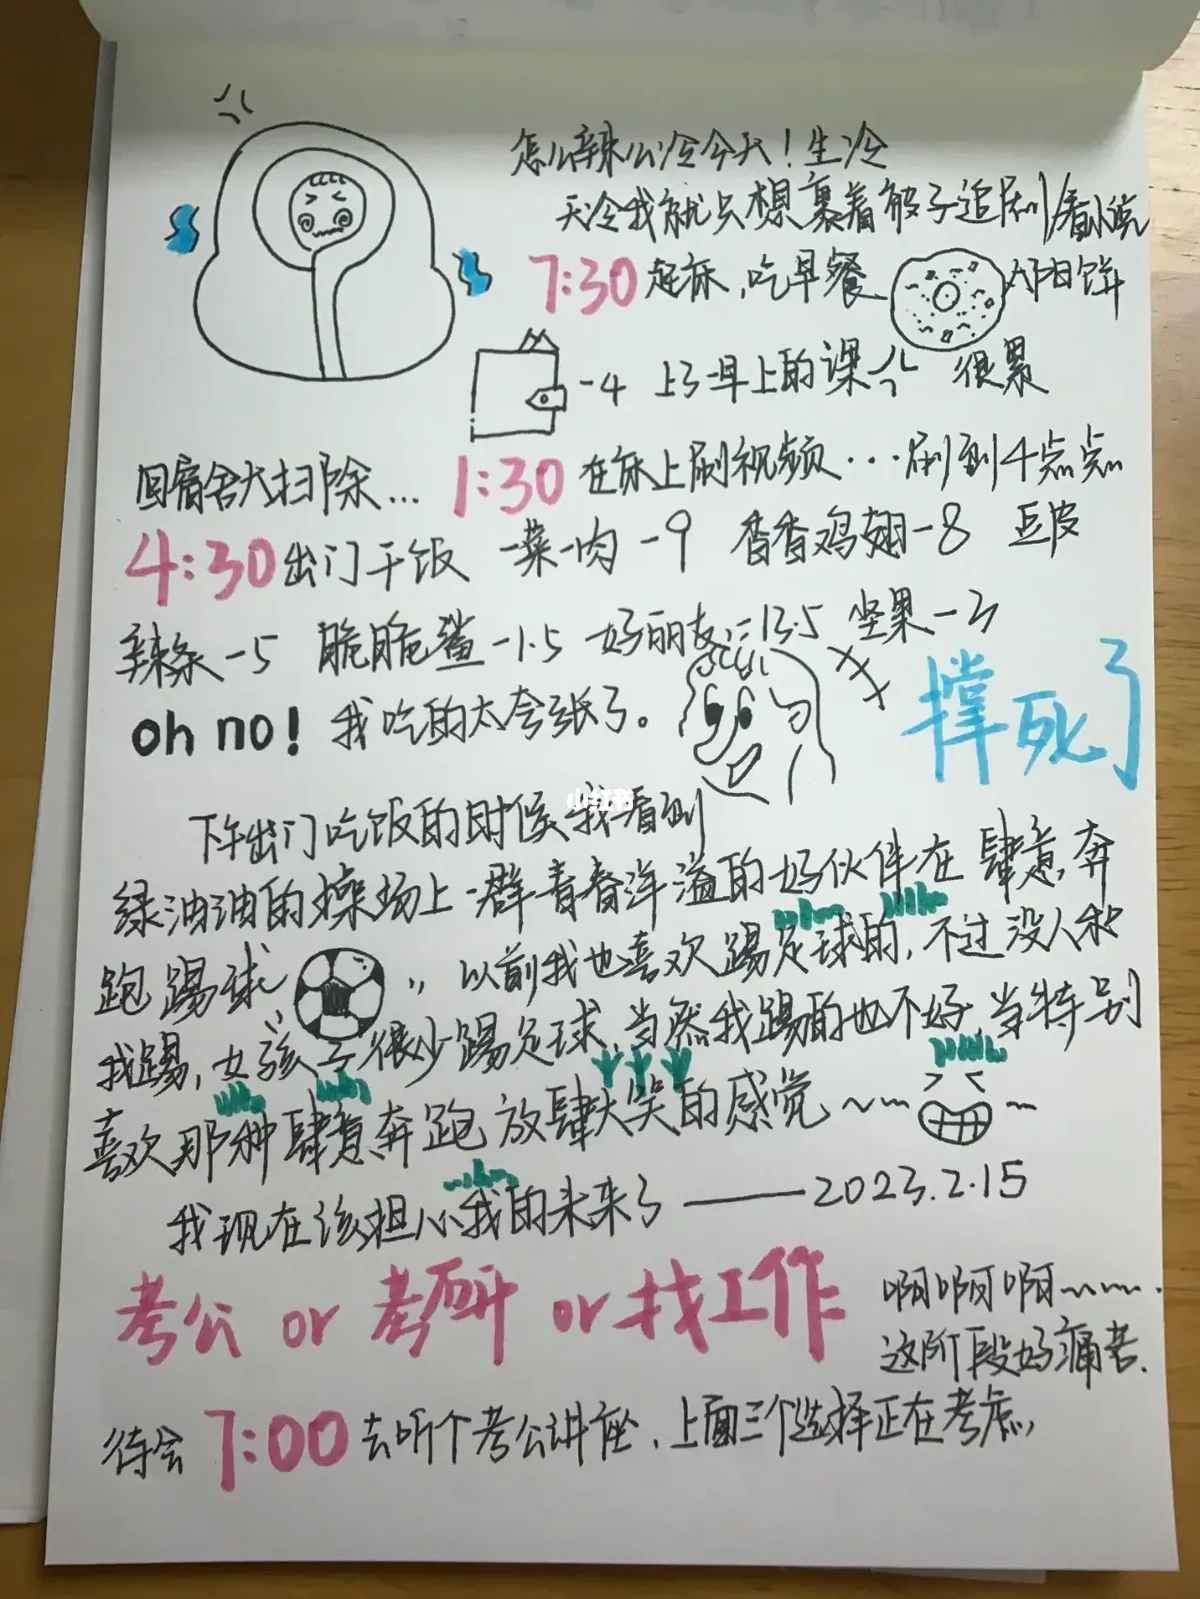 怎么辣么冷今天！生冷
天冷我就只想裹着被子追剧/看小说
7:30 起床，吃早餐 饼
-4 上了一早上的课 很累
回宿舍大扫除... 1:30 在床上刷视频...刷到4点点
4:30 出门干饭 一菜一肉 -9 香香鸡翅-8 豆皮
辣条-5 脆脆鲨-1.5 好丽友-13.5 坚果-3
oh no! 我吃的太夸张了。
撑死了
下午出门吃饭的时候我看到
小红书
绿油油的操场上一群青春洋溢的好伙伴在肆意奔
跑踢球，以前我也喜欢踢足球的，不过没人和
我踢，女孩子很少踢足球，当然我踢的也不好，当特别
喜欢那种肆意奔跑放肆大笑的感觉~
我现在该担心我的未来了——2023.2.15
考公 or 考研 or 找工作
啊啊啊~~~.
这阶段好痛苦.
待会 7:00 去听个考公讲座，上面三个选择正在考虑